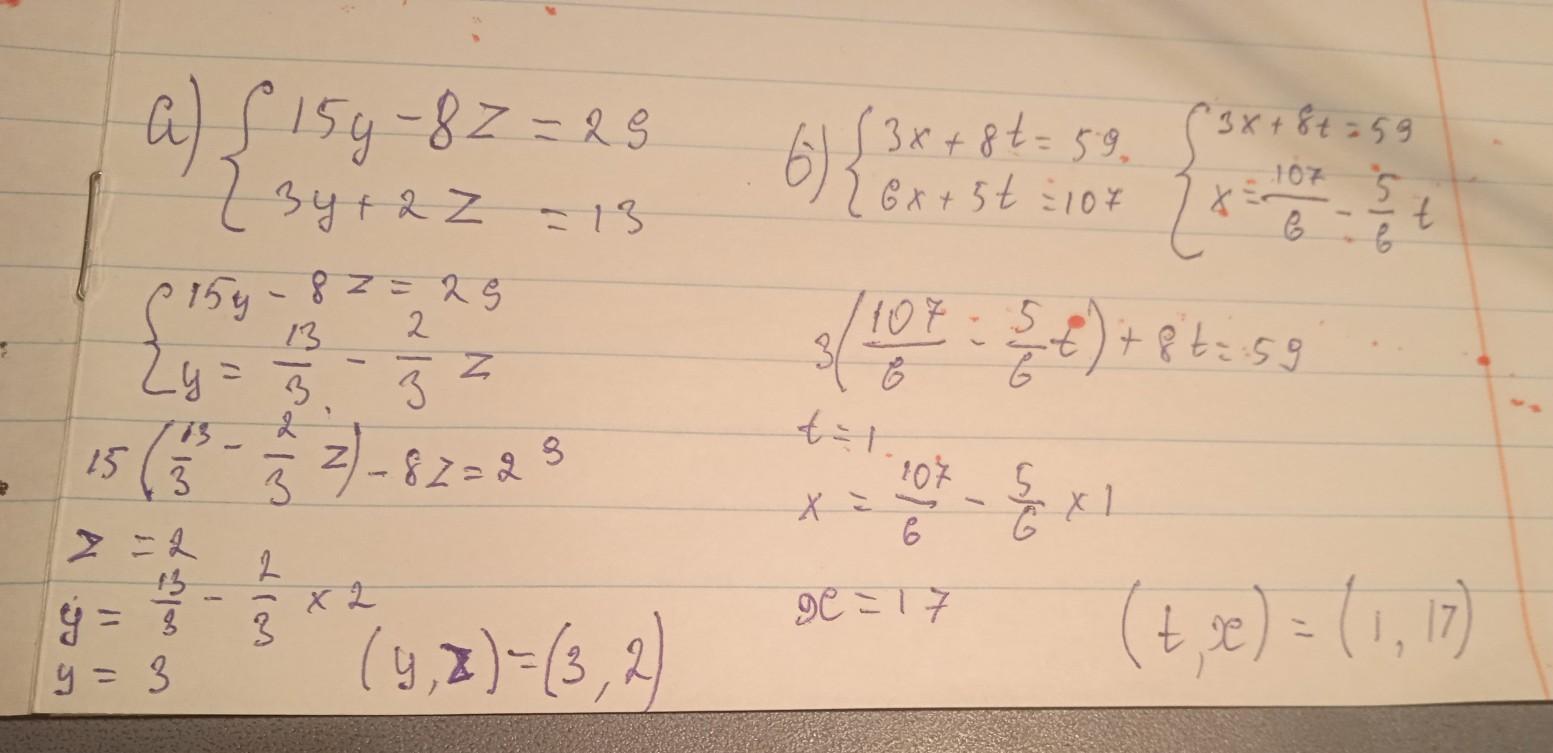 а) { 15y - 8z = 29
3y + 2z = 13
{ 15y - 8z = 29
y = 13/3 - 2/3 z
15 (13/3 - 2/3 z) - 8z = 29
z = 2
y = 13/3 - 2/3 × 2
y = 3
(y, z) = (3, 2)
б) { 3x + 8t = 59
6x + 5t = 107
{ 3x + 8t = 59
x = 107/6 - 5/6 t
3(107/6 - 5/6 t) + 8t = 59
t = 1
x = 107/6 - 5/6 × 1
x = 17
(t, x) = (1, 17)